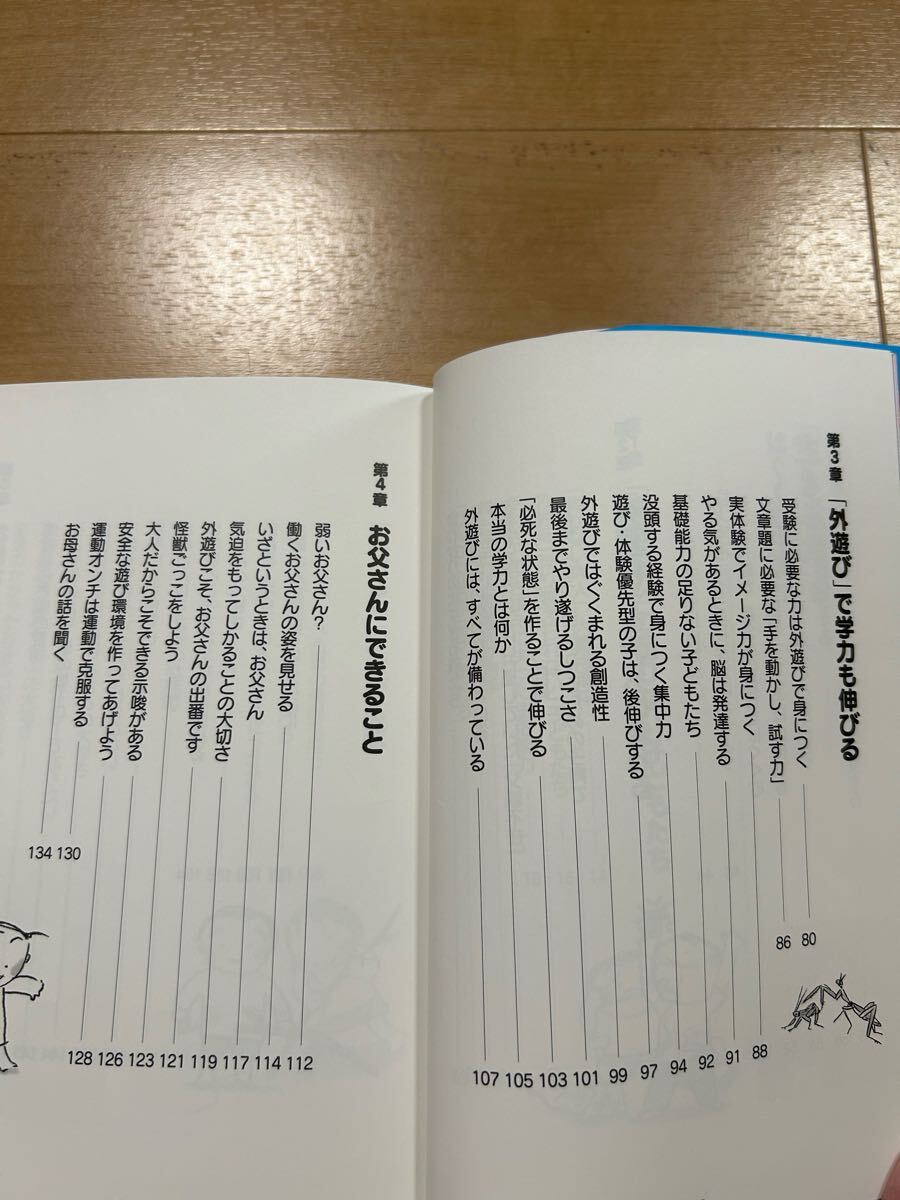 第3章 「外遊び」で学力も伸びる
受験に必要な力は外遊びで身につく 80
文章題に必要な「手を動かし、試す力」 86
実体験でイメージ力が身につく 88
やる気があるときに、脳は発達する 91
基礎能力の足りない子どもたち 92
没頭する経験で身につく集中力 94
遊び・体験優先型の子は、後伸びする 97
外遊びではぐくまれる創造性 99
最後までやり遂げるしつこさ 101
「必死な状態」を作ることで伸びる 103
本当の学力とは何か 105
外遊びには、すべてが備わっている 107
第4章 お父さんにできること
弱いお父さん? 112
働くお父さんの姿を見せる 114
いざというときは、お父さん 117
気迫をもってしかることの大切さ 119
外遊びこそ、お父さんの出番です 121
怪獣ごっこをしよう 123
大人だからこそできる示唆がある 126
安全な遊び環境を作ってあげよう 128
運動オンチは運動で克服する 130
お母さんの話を聞く 134